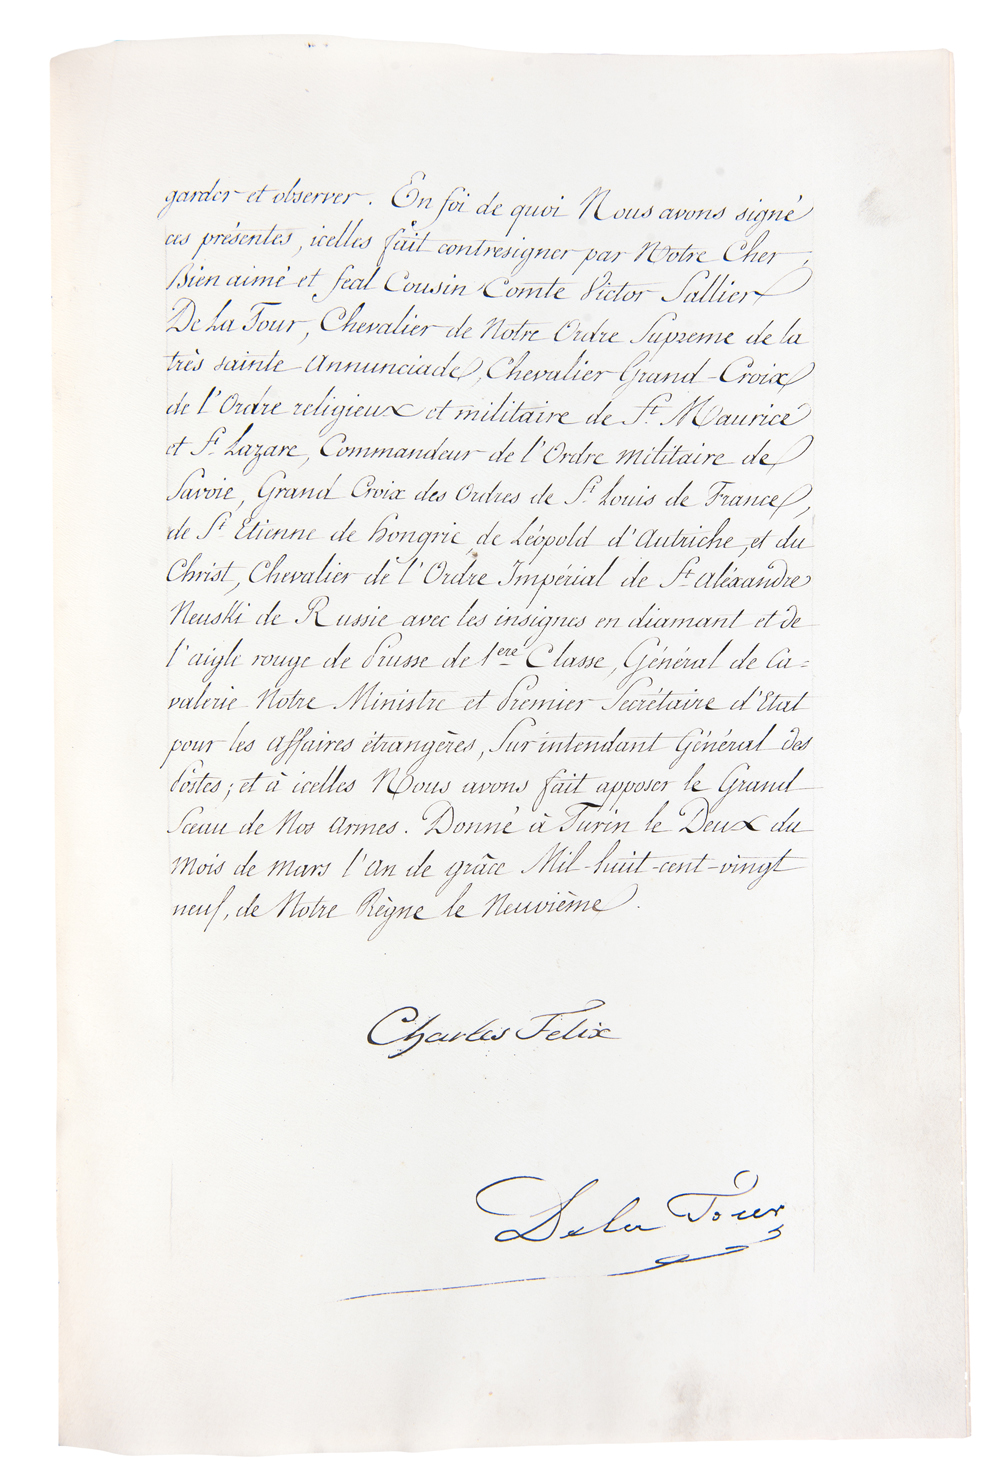 garder et observer. En foi de quoi Nous avons signé
ces présentes, icelles fait contresigner par Notre Cher,
Bien aimé et féal Cousin Comte Victor Sallier
De La Tour, Chevalier de Notre Ordre Supreme de la
très sainte Annunciade, Chevalier Grand-Croix
de l'Ordre religieux et militaire de St. Maurice
et St. Lazare, Commandeur de l'Ordre militaire de
Savoie, Grand Croix des Ordres de St. Louis de France,
de St. Etienne de hongrie, de Léopold d'Autriche, et du
Christ, Chevalier de l'Ordre Impérial de St. Aléxandre
Neuski de Russie avec les insignes en diamant et de
l'aigle rouge de Prusse de 1ere Classe, Général de Ca=
valerie Notre Ministre et Premier Secrétaire d'Etat
pour les Affaires étrangères, Surintendant Général des
Postes; et à icelles Nous avons fait apposer le Grand
Sceau de Nos Armes. Donné à Turin le Deux du
mois de mars l'An de grâce Mil-huit-cent-vingt
neuf, de Notre Règne le Neuvième.
Charles Felix
De la Tour